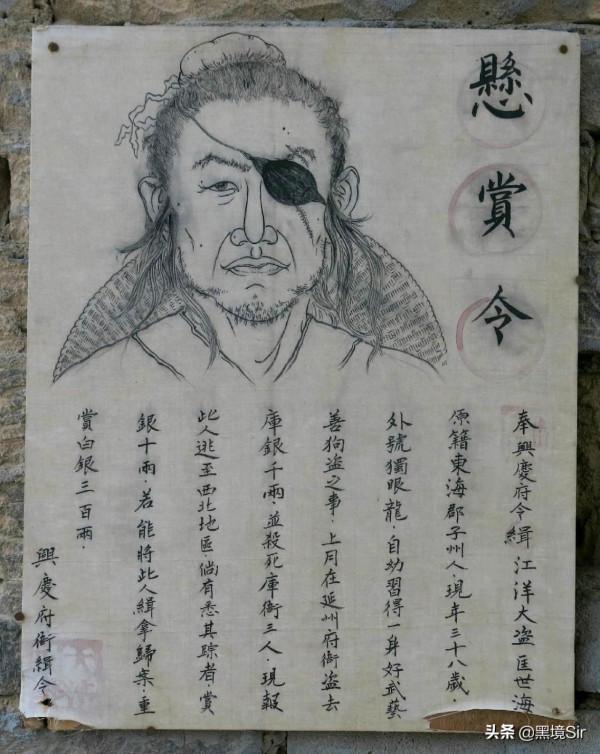 懸賞令
奉興慶府令緝江洋大盜匡世海
原籍東海郡子州人．現年三十八歲．
外號獨眼龍．自幼習得一身好武藝
善狗盜之事．上月在延州府衙盜去
庫銀千兩．並殺死庫衛三人．現報
此人逃至西北地區．倘有悉其踪者．賞
銀十兩．若能將此人緝拿歸案．重
賞白銀三百兩．
興慶府衙緝令
头条 @黑境Sir